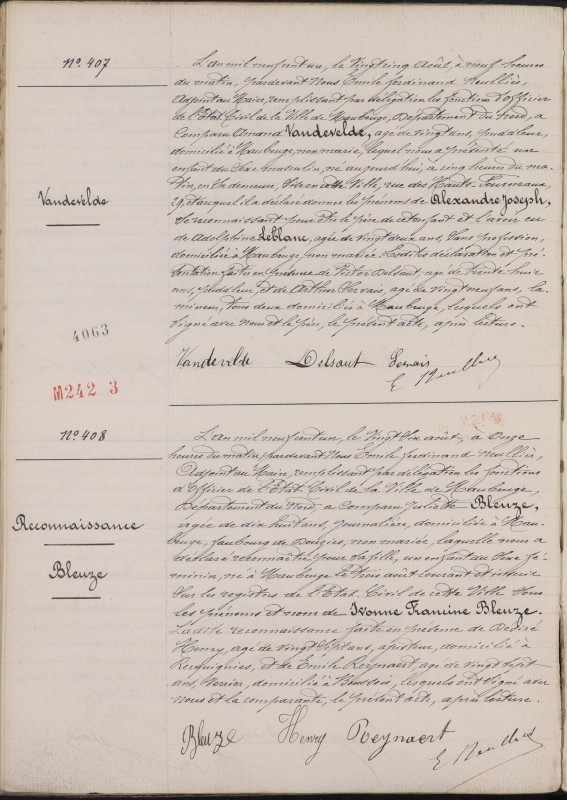 N° 407
Vandevelde
4063
M242 3
L'An mil neuf cent un, le vingt cinq Août, à neuf heures
du matin, pardevant Nous Emile Ferdinand Neulliès,
Adjoint au Maire, remplissant par délégation les fonctions d'Officier
de l'Etat Civil de la Ville de Maubeuge, Département du Nord, a
Comparu Amand Vandevelde, âgé de vingt ans, puddleur,
domicilié à Maubeuge, non marié, lequel nous a présenté un
enfant du Sexe masculin, né aujourd'hui, à cinq heures du ma-
tin, en Sa demeure, Sise en cette Ville, rue des Hauts-Fourneaux,
29, et auquel il a déclaré donner les prénoms de Alexandre Joseph,
Se reconnaissant pour être le père de cet enfant et l'avoir eu
de Adolphine Leblanc, âgée de vingt deux ans, Sans profession,
domiciliée à Maubeuge, non mariée. Lesdites déclaration et pré-
sentation faites en présence de Victor Delsaut, âgé de trente huit
ans, puddleur, et de Arthur Gervais, âgé de vingt neuf ans, la-
mineur, tous deux domiciliés à Maubeuge, lesquels ont
Signé avec nous et le père, le présent acte, après lecture.
Vandevelde Delsaut Gervais
E Neulliès
N° 408
Reconnaissance
Bleuze
L'An mil neuf cent un, le Vingt Six août, à Onze
heures du matin, pardevant Nous Emile Ferdinand Neulliès,
Adjoint au Maire, remplissant par délégation les fonctions
d'Officier de l'Etat Civil de la Ville de Maubeuge,
Département du Nord, a Comparu Juliette Bleuze,
âgée de dix huit ans, journalière, domiciliée à Mau-
beuge, faubourg de Bougies, non mariée, laquelle nous a
déclaré reconnaître pour Sa fille, un enfant du Sexe fé-
minin, né à Maubeuge le trois août courant et inscrit
Sur les registres de l'Etat Civil de cette Ville Sous
les prénoms et nom de Ivonne Francine Bleuze.
La dite reconnaissance faite en présence de Désiré
Henry, âgé de vingt sept ans, ajusteur, domicilié à
Recquignies, et de Emile Reynaert, âgé de vingt sept
ans, Verrier, domicilié à Boussois, lesquels ont Signé avec
nous et la comparante, le présent acte, après lecture.
Bleuze Henry Reynaert
E Neulliès